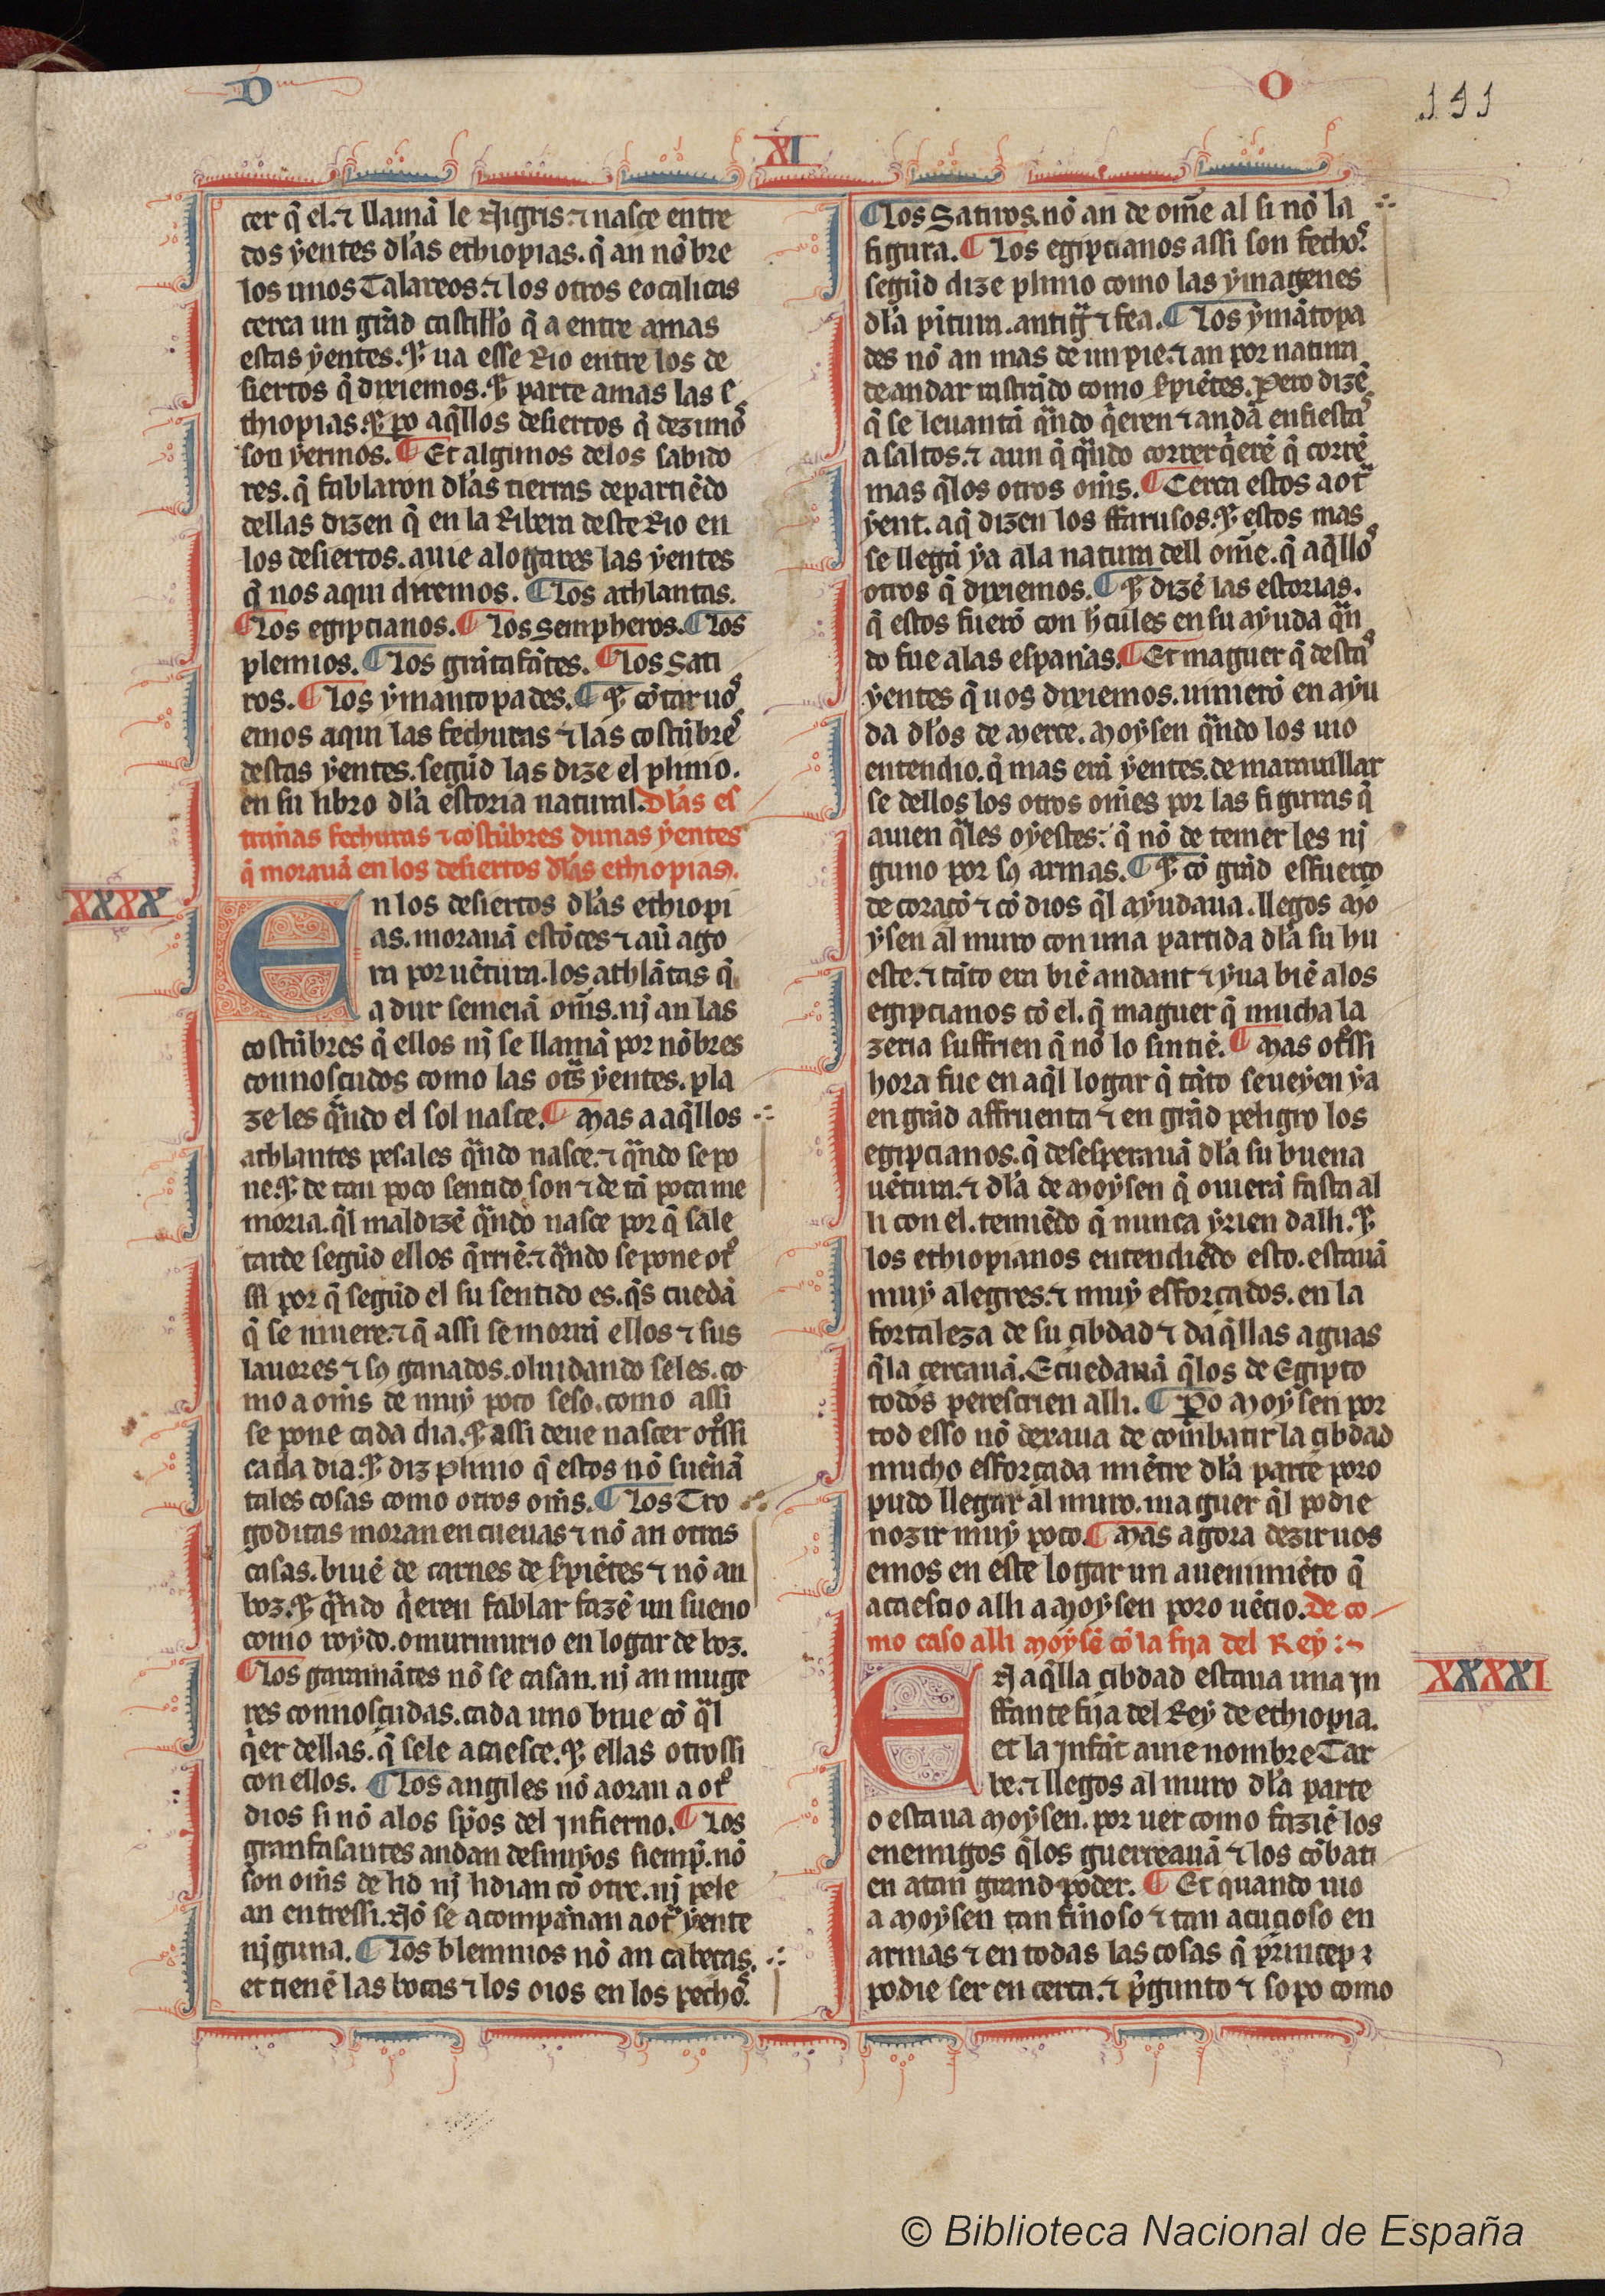 D
O
191
XI
cer q̃ el. ⁊ llamã le Nigris. ⁊ nasçe entre
dos yentes dlas ethiopias. q̃ an nõbre
los unos Talareos. ⁊ los otros eocalicas
cerca un grãd castillo q̃ a entre amas
estas yentes. ⁊ ua esse Rio entre los de
siertos q̃ dixiemos. ⁊ parte amas las e
thiopias. ⁊ po aq̃llos desiertos q̃ dezimos
son yermos. ¶ Et algunos delos sabido
res. q̃ fablaron dlas tierras departiẽdo
dellas dizen q̃ en la Ribera deste Rio en
los desiertos. auie a logares las yentes
q̃ nos aqui diremos. ¶ Los athlantas.
¶ Los egipcianos. ¶ Los sempheros. ¶ Los
plemios. ¶ Los grãtafãtes. ¶ Los Sati
ros. ¶ Los ymantopades. ¶ ⁊ cõtar uos
emos aqui las fechuras ⁊ las costũbres
destas yentes. segũd las dize el plinio.
en su libro dla estoria natural. Dlas es
trañas fechuras ⁊ costũbres dunas yentes
q̃ morauã en los desiertos dlas ethiopias.
XXXX
En los desiertos dlas ethiopi
as. morauã estõces ⁊ aũ ago
ra por uẽtura. los athlãtas q̃
a dur semeiã om̃s. nj an las
costũbres q̃ ellos nj se llamã por nõbres
connosçudos como las otͣs yentes. pla
ze les qͣndo el sol nasce. ¶ Mas a aq̃llos
athlantes pesales qͣndo nasce. ⁊ qͣndo se po
ne. ⁊ de tan poco sentido son ⁊ de tã poca me
moria. q̃l maldizẽ qͣndo nasce por q̃ sale
tarde segũd ellos q̃rriẽ. ⁊ qͣndo se pone otͦ
ssi por q̃ segũd el su sentido es. q̃s cuedã
q̃ se muere. ⁊ q̃ assi se morrã ellos ⁊ sus
lauores ⁊ sꝯ ganados. oluidando seles. co
mo a om̃s de muy poco seso. como assi
se pone cada dia. ⁊ assi deue nascer otͦssi
cada dia. ⁊ diz plinio q̃ estos nõ sueñã
tales cosas como otros om̃s. ¶ Los Tro
goditas moran en cueuas ⁊ nõ an otras
casas. biuẽ de carnes de ẜpiẽtes ⁊ nõ an
boz. ⁊ qͣndo q̃eren fablar fazẽ un sueno
como roydo. o murmurio en logar de boz.
¶ Los garamãtes nõ se casan. nj an muge
res connosçudas. cada uno biue cõ q̃l
q̃er dellas. q̃ sele acaesce. ⁊ ellas otrossi
con ellos. ¶ Los angiles nõ aoran a otͦ
dios si nõ alos sp̃os del jnfierno. ¶ Los
granfasantes andan desnuyos siemp̃. nõ
son om̃s de lid nj lidian cõ otre. nj pele
an entressi. Nõ se acompañan a otͣ yente
njguna. ¶ Los blemmios nõ an cabeças.
et tienẽ las bocas ⁊ los oios en los pechos.
¶ Los Satiros. nõ an de om̃e al si nõ la
figura. ¶ Los egipcianos assi son fechos.
segũd dize plinio como las ymagenes
dla pitura. antigͣ ⁊ fea. ¶ Los ymãtopa
des nõ an mas de un pie. ⁊ an por natura
de andar rastrãdo como ẜpiẽtes. Pero dizẽ
q̃ se leuantã qͣndo q̃eren ⁊ andã enfiestos
a saltos. ⁊ aun q̃ qͣndo correr q̃erẽ q̃ corrẽ
mas q̃los otros om̃s. ¶ Cerca estos a otͣ
yent. aq̃ dizen los ffarusos. ⁊ estos mas
se llegã ya ala natura dell om̃e. q̃ aq̃llos
otros q̃ dixiemos. ¶ ⁊ dizẽ las estorias.
q̃ estos fuerõ con hͨcules en su ayuda qͣn
do fue alas españas. ¶ Et maguer q̃ destas
yentes q̃ uos dixiemos. uinierõ en ayu
da dlos de Merce. Moysen qͣndo los uio
entendio. q̃ mas erã yentes. de marauillar
se dellos los otros om̃es por las figuras q̃
auien q̃les oyestes. q̃ nõ de temer les nj
guno por sꝯ armas. ¶ ⁊ cõ grãd esfuerço
de coraçõ ⁊ cõ dios q̃l ayudaua. llegos Mo
ysen al muro con una partida dla su hu
este. ⁊ tãto era biẽ andant ⁊ yua biẽ alos
egipcianos cõ el. q̃ maguer q̃ mucha la
zeria suffrien q̃ nõ lo sintiẽ. ¶ Mas otͦssi
hora fue en aq̃l logar q̃ tãto se ueyen ya
en grãd affruenta ⁊ en grãd peligro los
egipcianos. q̃ desesperauã dla su buena
uẽtura. ⁊ dla de Moysen q̃ ouierã fasta al
li con el. temiẽdo q̃ nunca yrien dalli. ⁊
los ethiopianos entendiẽdo esto. estauã
muy alegres. ⁊ muy esforçados. en la
fortaleza de su çibdad ⁊ daq̃llas aguas
q̃la çercauã. E cuedauã q̃los de Egipto
todos peresçrien alli. ¶ Po Moysen por
tod esso nõ dexaua de combatir la çibdad
mucho esforçada miẽtre dla parte poro
pudo llegar al muro. maguer q̃l podie
nozir muy poco. ¶ Mas agora dezir uos
emos en este logar un auenimiẽto q̃
acaescio alli a Moysen poro uẽcio. De co
mo caso alli Moysẽ cõ la fija del Rey :~
XXXXI
EN aq̃lla çibdad estaua una jn
ffante fija del Rey de ethiopia.
et la jnfãt auie nombre Tar
be. ⁊ llegos al muro dla parte
o estaua Moysen. por uer como faziẽ los
enemigos q̃los guerreauã ⁊ los cõbati
en atan grand poder. ¶ Et quando uio
a Moysen tan fṁoso ⁊ tan acucioso en
armas ⁊ en todas las cosas q̃ prĩncep ⁊
podie ser en cerca. ⁊ p̃gunto ⁊ sopo como
© Biblioteca Nacional de España